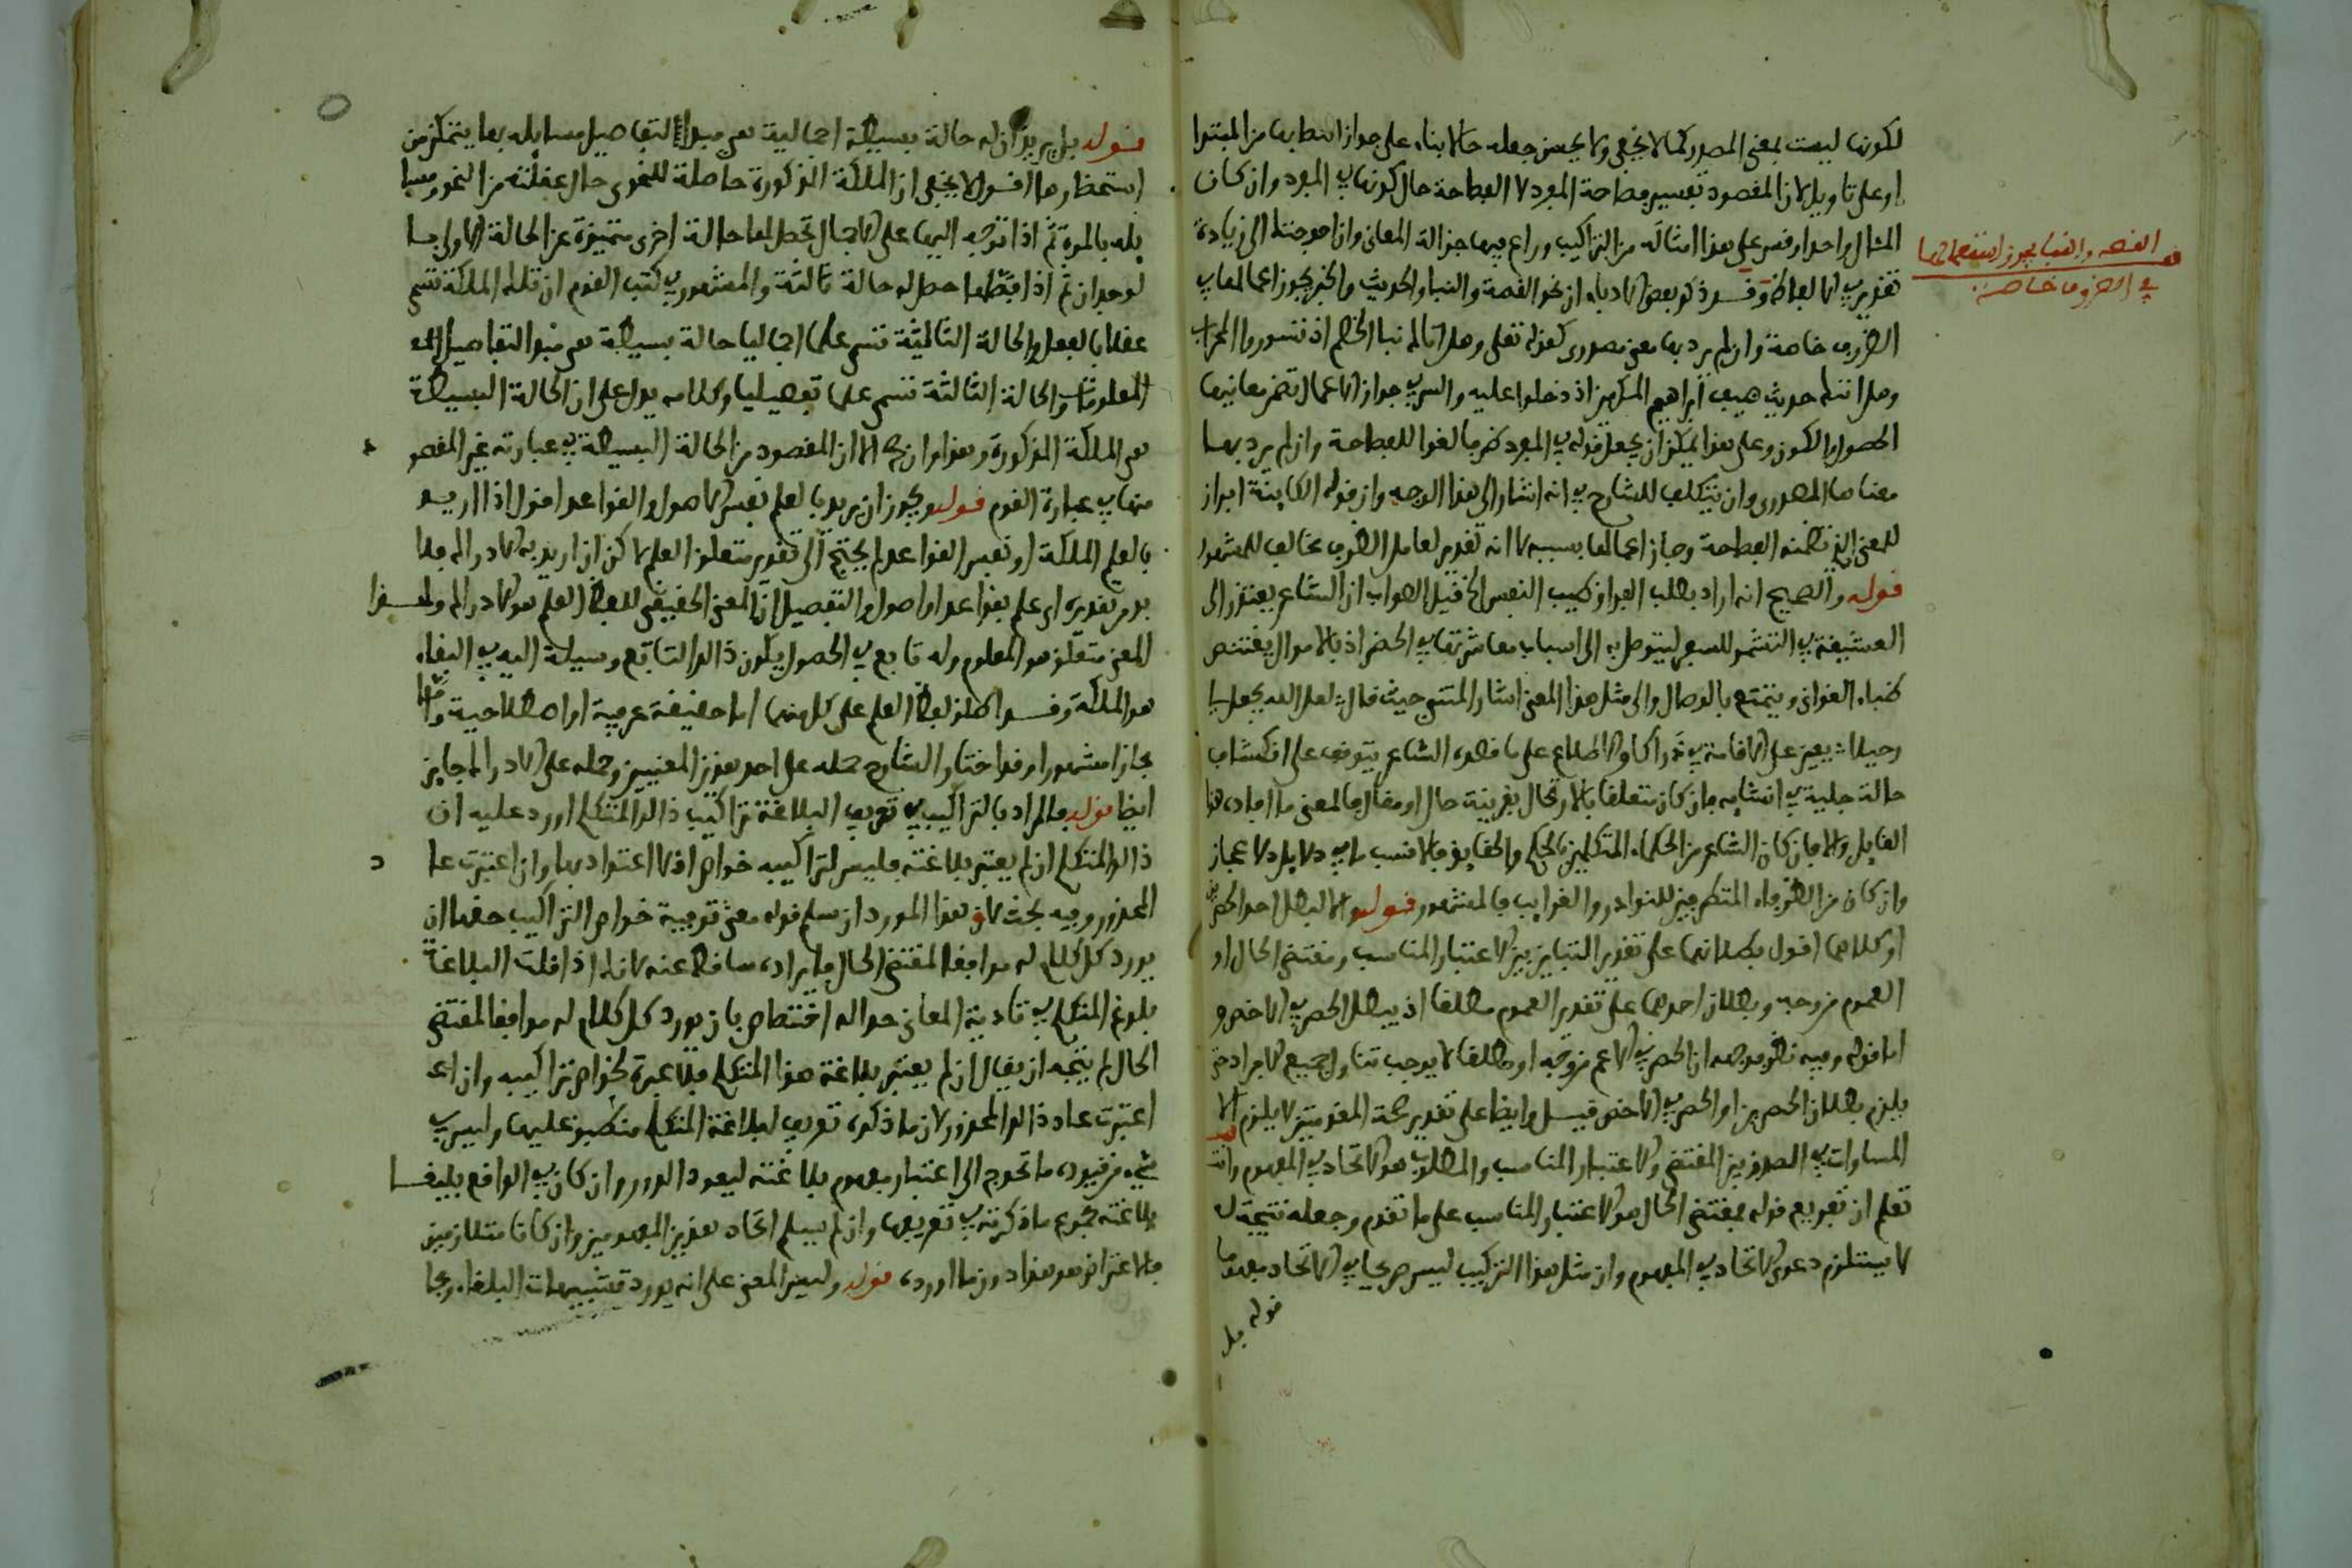 لكونها ليست بمعنى المصدر كما لا يخفى ولا يحسن جعله حالا بناء على جواز انتصابها من المبتدا
او على تاويل لان المقصود تفسير فصاحة المفرد لا الفصاحة حال كونها في المفرد وان كان
المثال واحدا وقس على هذا امثاله من التراكيب وراع فيها جزالة المعاني وان احوجتنا الى زيادة
تقدير في الالفاظ وقد ذكر بعض الادباء ان نحو القصة والنبا والحديث والخبر يجوز اعمالها في
الظروف خاصة وان لم يرد بها معنى مصدري كقوله تعلى وهل اتاك نبا الخصم اذ تسوروا المحراب
وهل اتاك حديث ضيف ابراهيم المكرمين اذ دخلوا عليه والسر في جواز الاعمال تضمن معانيها
الحصول والكون وعلى هذا يمكن ان يجعل قوله في المفرد ظرفا لغوا للفصاحة وان لم يرد بها
معناها المصدري وان يتكلف للشارح في انه اشار الى هذا الوجه وان قوله الكاينة ابراز
للمعنى الذي تضمنه الفصاحة وجاز اعمالها بسببه لا انه تقدير لعامل الظرف مخالف للمشهور
قوله والصحيح انه اراد بطلب الفراق طيب النفس الخ قيل الصواب ان الشاعر يعتذر الى
العشيقة في التشمر للسفر ليتوصل به الى اسباب معاشرتها في الحضر اذ بالاموال يقتنص
ظباء الغواني ويتمتع بالوصال والى مثل هذا المعنى اشار المتنبي حيث قال لعل الله يجعله
رحيلا يعين على الاقامة في ذراكا والاطلاع على ما قصده الشاعر يتوقف على انكشاف
حالة جلية في انشايه فان كان متعلقا بالارتحال بقرينة حال او مقال فالمعنى ما افاده هذا
القايل والا فان كان الشاعر من الحكماء المتكلمين بالحكم والحقايق فالانسب ما في دلايل الاعجاز
وان كان من الظرفاء المتطرفين للنوادر والغرايب فالمشهور قوله والا لبطل احد الحصرين
او كلاهما اقول بطلانهما على تقدير التباين بين الاعتبار المناسب ومقتضى الحال او
العموم من وجه وبطلان احدهما على تقدير العموم مطلقا اذ يبطل الحصر في الاخص و
اما قوله وفيه نظر فوجهه ان الحصر في الاعم من وجه او مطلقا لا يوجب تناول جميع الافراد حتى
يلزم بطلان الحصرين او الحصر في الاخص قيل وايضا على تقدير صحة المقدمتين لا يلزم الا
المساوات في الصدق بين المقتضى والاعتبار المناسب والمطلوب هو الاتحاد في المفهوم وانت
تعلم ان تفريع قوله فمقتضى الحال هو الاعتبار المناسب على ما تقدم وجعله نتيجة له
لا يستلزم دعوى الاتحاد في المفهوم وان مثل هذا التركيب ليس صريحا في الاتحاد مفهوما
قوله بل
القصة والنبا يجوز استعمالهما
في الظروف خاصة
قوله بل يريد ان له حالة بسيطة اجمالية هي مبدا لتفاصيل مسايله بها يتمكن من
استحضارها اقول لا يخفى ان الملكة المذكورة حاصلة للنحوي حال غفلته عن النحو ومسا
يله بالمرة ثم اذا توجه اليها على الاجمال تحصل لها حالة اخرى متميزة عن الحالة الاولى بما
لوجدان ثم اذا فصلها حصل له حالة ثالثة والمشهور في كتب القوم ان تلك الملكة تسمى
عقلا بالفعل والحالة الثانية تسمى علما اجماليا حالة بسيطة هي مبدا لتفاصيل
المعلومات والحالة الثالثة تسمى علما تفصيليا وكلامه يدل على ان الحالة البسيطة
هي الملكة المذكورة وهذا وان صح الا ان المقصود من الحالة البسيطة في عبارته غير المقصو
د
منها في عبارة القوم قوله ويجوز ان يريد بالعلم نفس الاصول والقواعد اقول اذا اريد
بالعلم الملكة او نفس القواعد لم يحتج الى تقدير متعلق العلم لاكن ان اريد به الادراك فلا
بد من تقديره اي علم بقواعد او اصول والتفصيل ان المعنى الحقيقي للفظ العلم هو الادراك ولهذا
المعنى متعلق هو المعلوم وله تابع في الحصول يكون ذالك التابع وسيلة اليه في البقاء
هو الملكة وقد اطلق لفظ العلم على كل منهما اما حقيقة عرفية او اصطلاحية واما
مجازا مشهورا وقد اختار الشارح حمله على احد هذين المعنيين وحمله على الادراك جايز
ايضا قوله فالمراد بالتراكيب في تعريف البلاغة تراكيب ذالك المتكلم اورد عليه ان
ذالك المتكلم ان لم يعتبر بلاغته فليس لتراكيبه خواص اذ لا اعتداد بها وان اعتبرت عا
د
المحذور وفيه بحث لان هذا المورد ان سلم قوله معنى توفية خواص التراكيب حقها ان
يورد كل كلام له موافقا لمقتضى الحال فايراده ساقط عنه لانك اذا قلت البلاغة
بلوغ المتكلم في تادية المعاني حدا له اختصاص بان يورد كل كلام له موافقا لمقتضى
الحال لم يتجه ان يقال ان لم يعتبر بلاغة هذا المتكلم فلا عبرة لخواص تراكيبه وان
اعتبرت عاد ذالك المحذور لان ما ذكره تعريف لبلاغة المتكلم منطبق عليها وليس في
شيء من قيوده ما تحوج الى اعتبار مفهوم بلاغته ليعود الدور وان كان في الواقع بليغا
بلاغته مجموع ما ذكرته في تعريفها وان لم يسلم اتحاد هذين المفهومين وان كانا متلازمين
فالاعتراض هو هذا دون ما اورده قوله وليس المعنى على انه يورد تشبيهات البلغاء ومجا